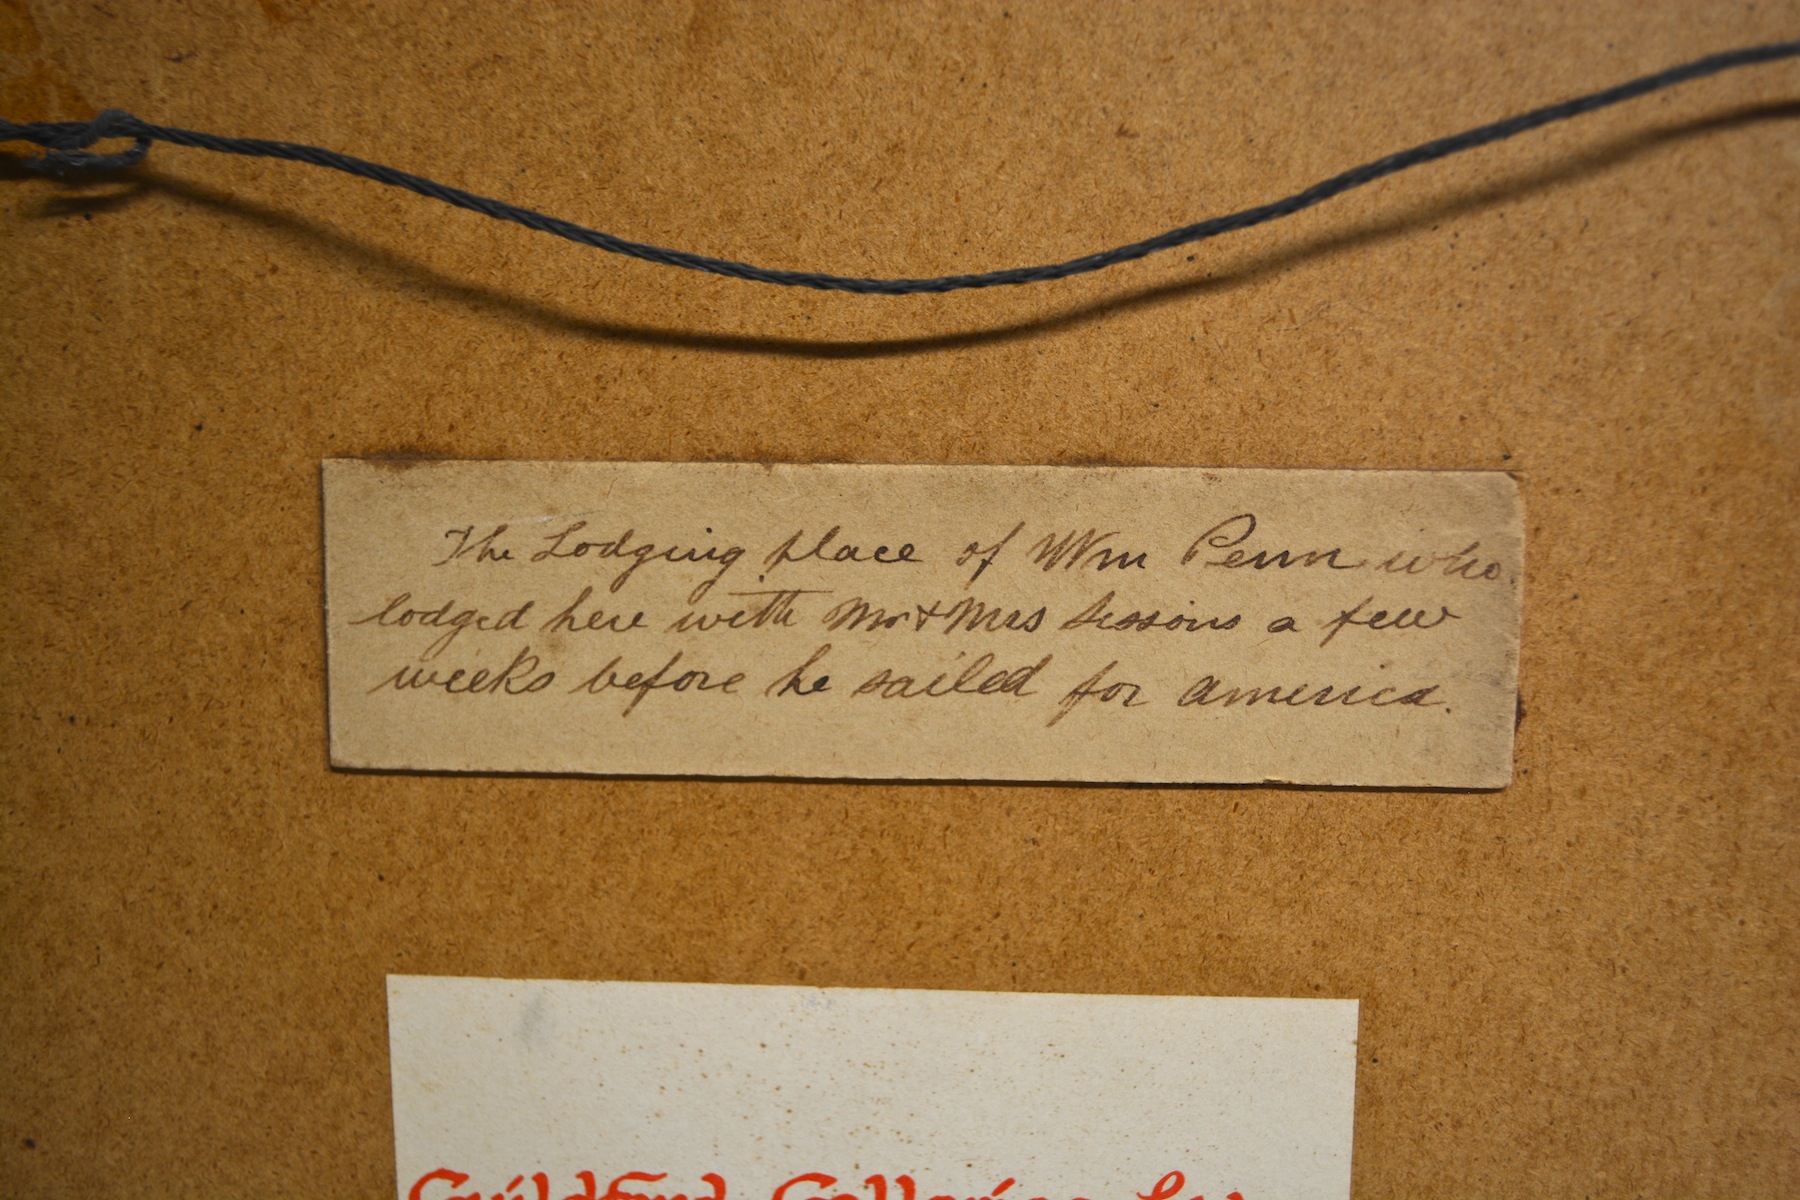 The Lodging place of Wm Penn who
lodged here with Mr & Mrs Sessions a few
weeks before he sailed for america.
Guildford Galleries